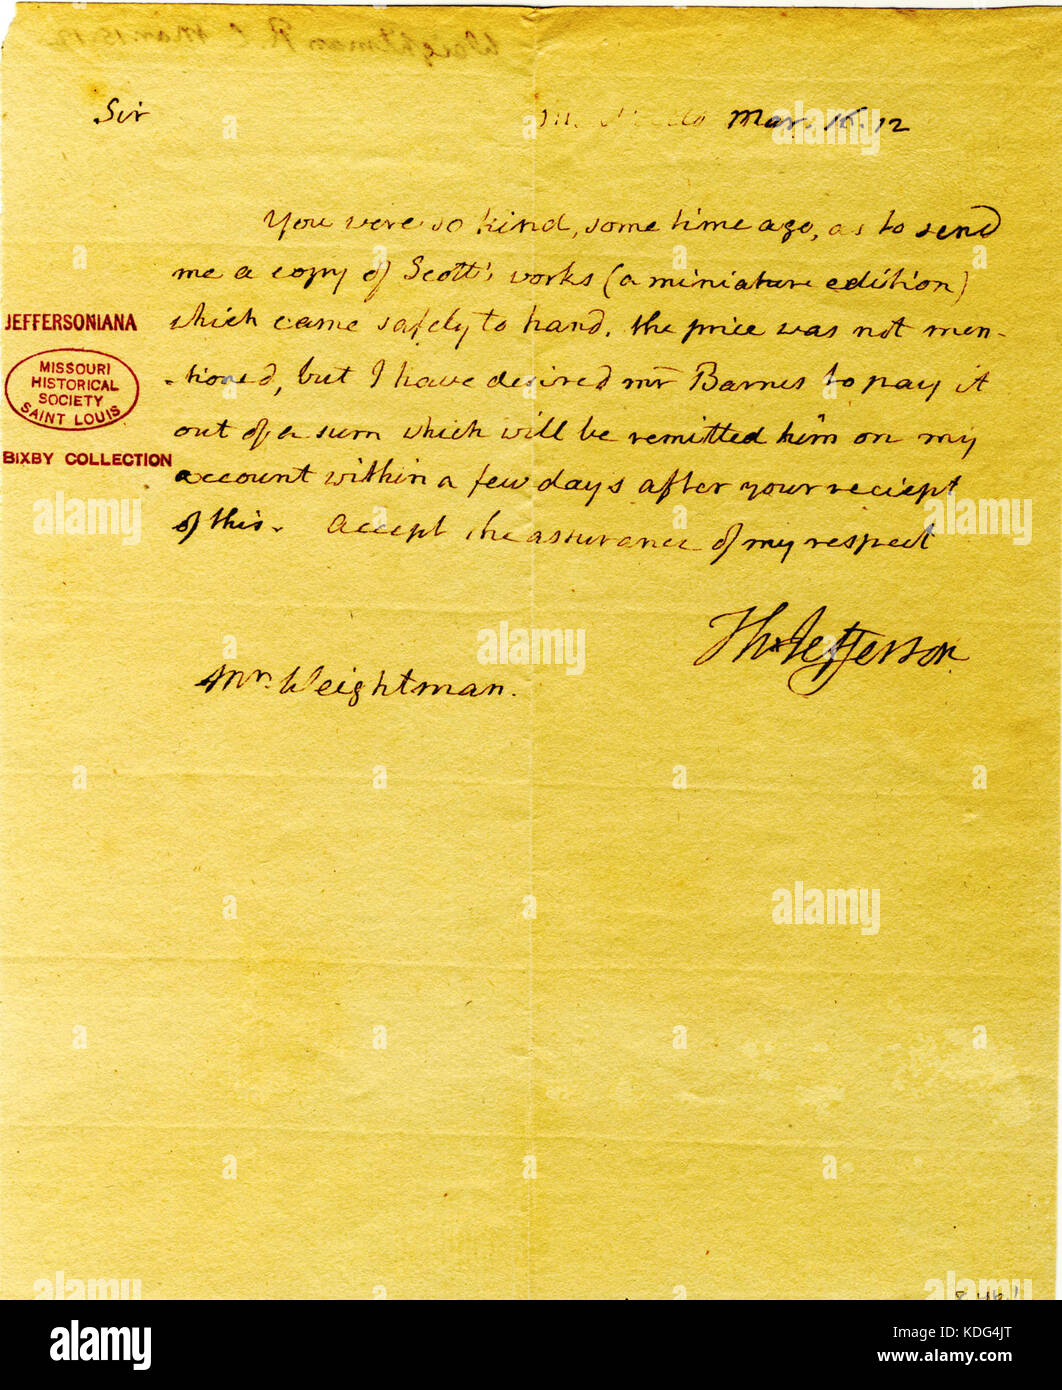 Sir
Mar. 16. 12
You were so kind, some time ago, as to send
me a copy of Scott's works (a miniature edition)
which came safely to hand. the price was not men-
-tioned, but I have desired mr Barnes to pay it
out of a sum which will be remitted him on my
account within a few days after your reciept
of this. Accept the assurance of my respect
Th: Jefferson
Mr. Weightman.
JEFFERSONIANA
MISSOURI
HISTORICAL
SOCIETY
SAINT LOUIS
BIXBY COLLECTION
alamy
Image ID: KDG4JT
www.alamy.com